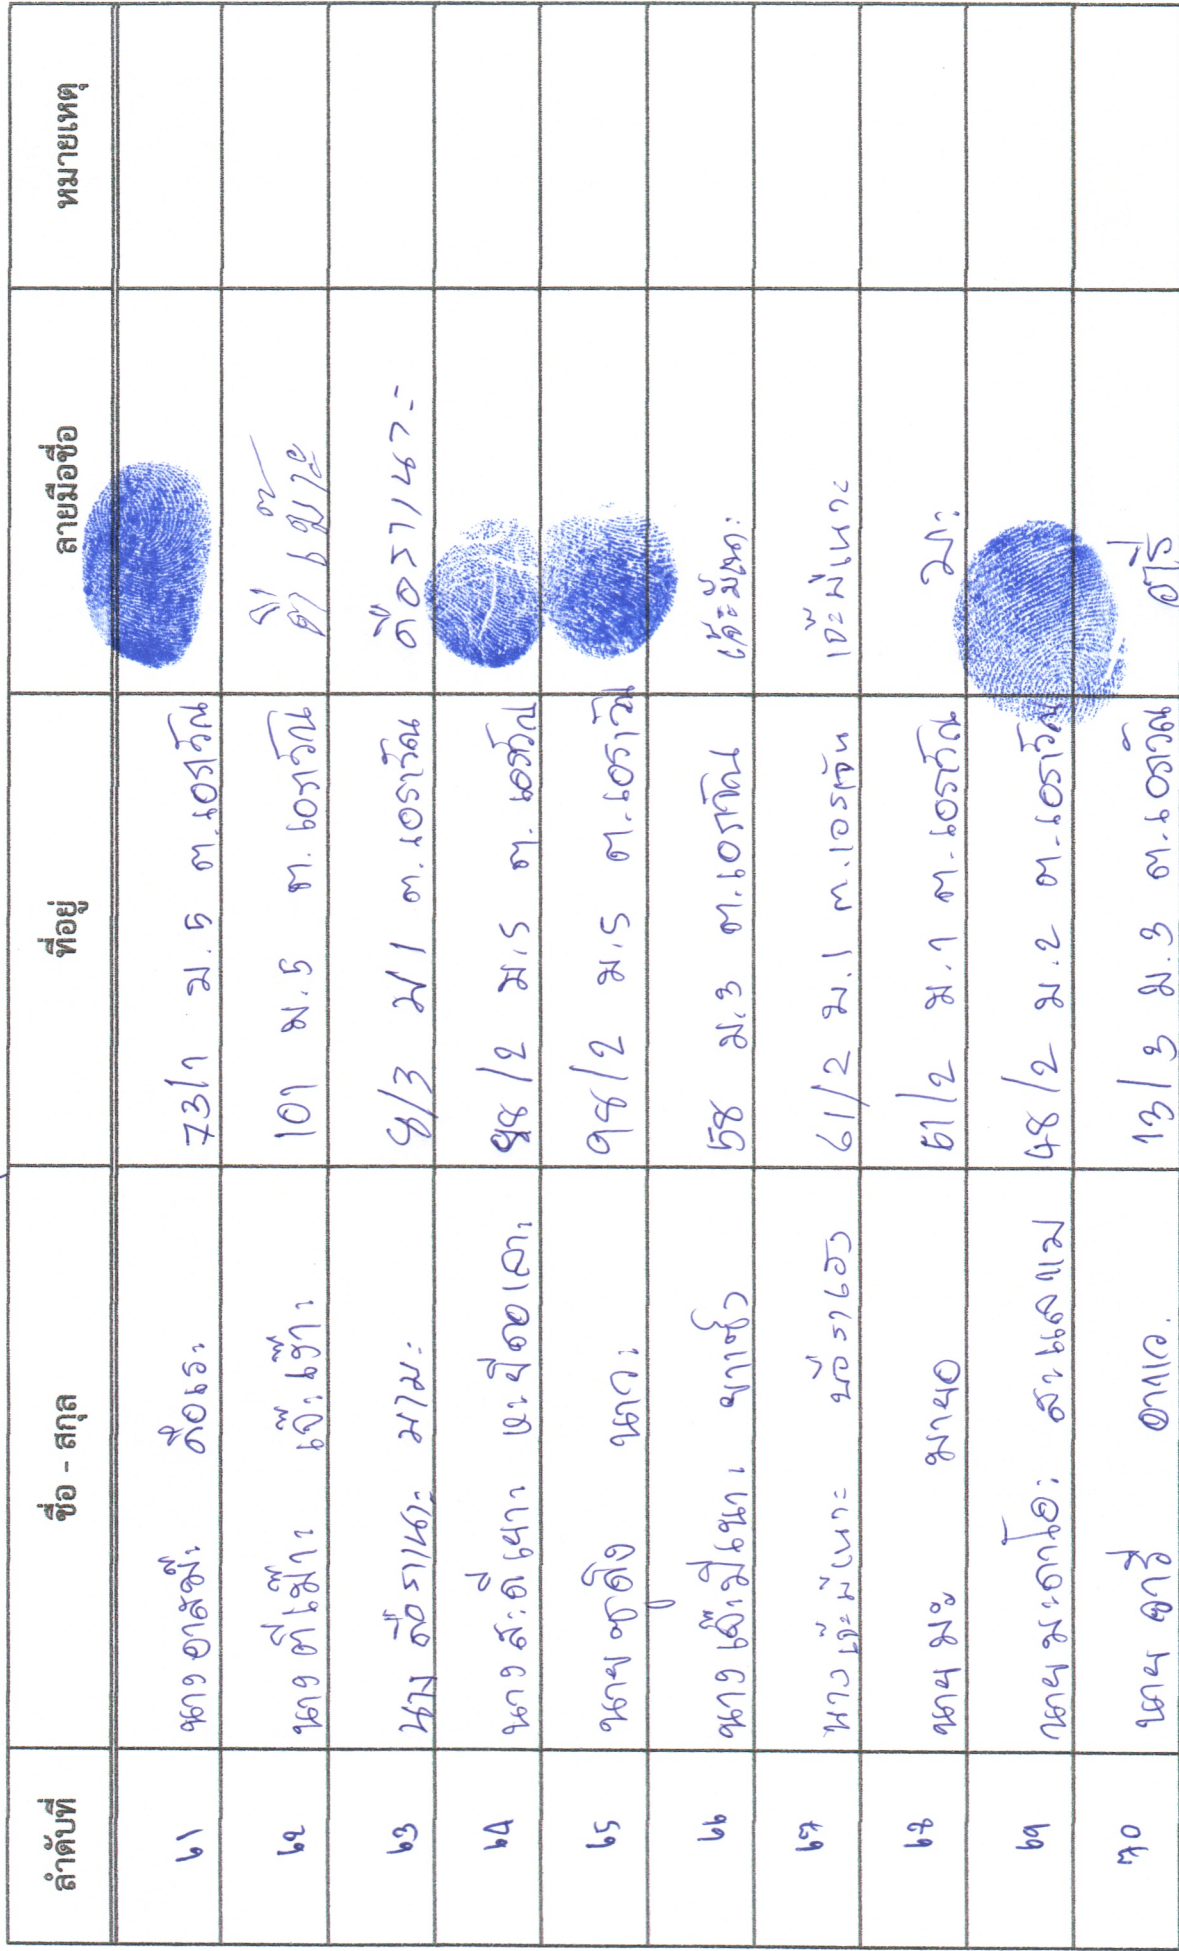 ลำดับที่ ชื่อ - สกุล ที่อยู่ ลายมือชื่อ หมายเหตุ
๖๑ นางอาสมีะ ดือเระ 73/1 ม.5 ต.เอราวัณ
๖๒ นางตีเม๊าะ เจ๊ะเง๊าะ 101 ม.5 ต.เอราวัณ ตีเม๊าะ
๖๓ นาง ดือราแนะ มามะ 8/3 ม 1 ต.เอราวัณ ดือราแนะ
๖๔ นางสะตีเยาะ 98/2 ม.5 ต.เอราวัณ
๖๕ นาย นาวะ 98/2 ม.5 ต.เอราวัณ
๖๖ นางเจ๊ะมีเนาะ 58 ม.3 ต.เอราวัณ
๖๗ นางเจ๊ะมีเนาะ 61/2 ม.1 ต.เอราวัณ เจ๊ะมีเนาะ
๖๘ นาย มะ มายอ 51/2 ม.1 ต.เอราวัณ มะ
๖๙ นายมะดาโอะ สะแลแม 48/2 ม.2 ต.เอราวัณ
๗๐ นาย อารี อาแว 13/3 ม.3 ต.เอราวัณ อารี